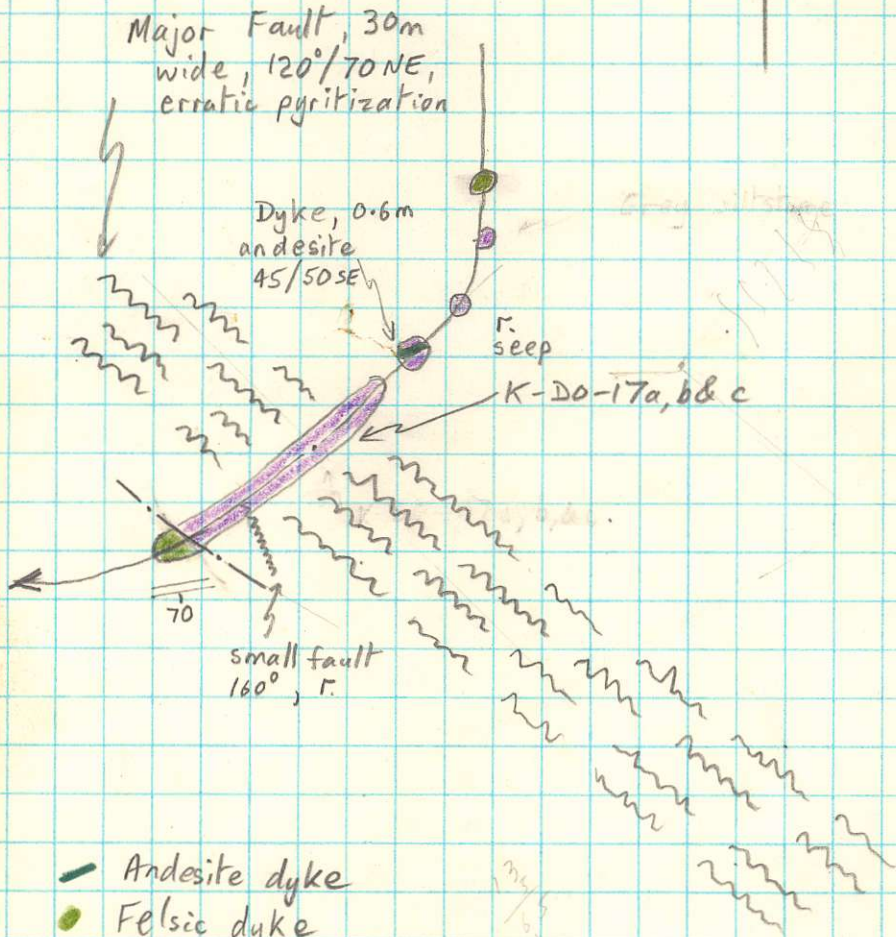 Major Fault, 30m
wide, 120°/70 NE,
erratic pyritization
Dyke, 0.6m
andesite
45/50 SE
r.
seep
K-DO-17a, b & c
70
small fault
160°, r.
Andesite dyke
Felsic dyke